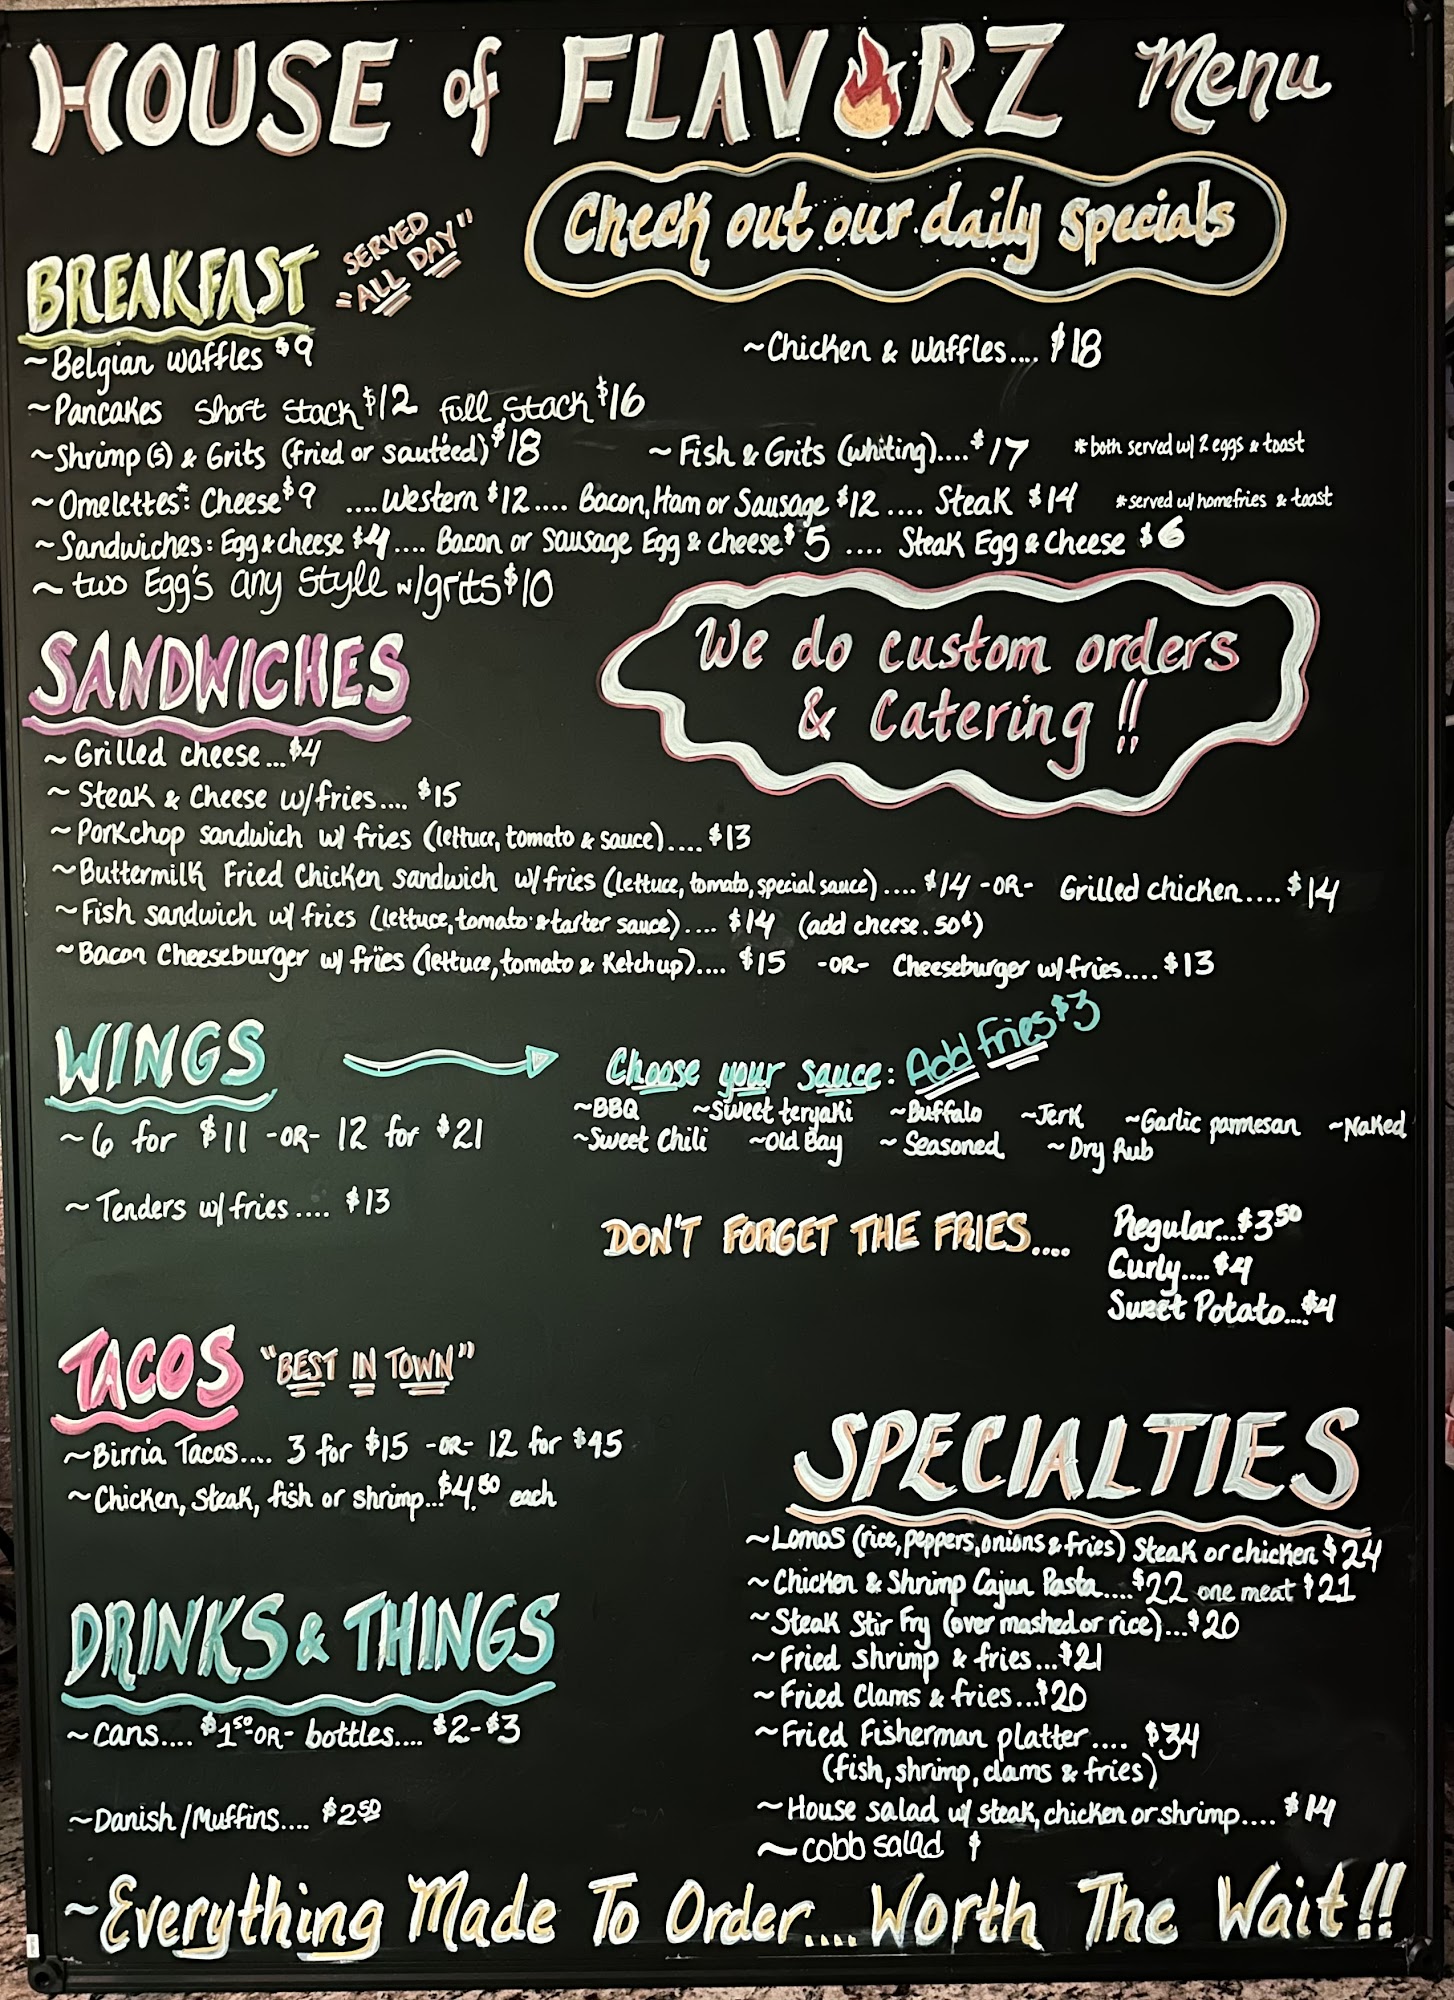 HOUSE of FLAVORZ Menu
Check out our daily specials
BREAKFAST "SERVED "ALL DAY"
~Belgian waffles $9
~Chicken & Waffles.... $18
~Pancakes Short Stack $12 Full Stack $16
~Shrimp (5) & Grits (fried or sautéed) $18 ~Fish & Grits (whiting)....$17 *both served w/ 2 eggs & toast
~Omelettes*: Cheese $9 ....Western $12.... Bacon, Ham or Sausage $12.... Steak $14 *served w/ homefries & toast
~Sandwiches: Egg & cheese $4.... Bacon or Sausage Egg & cheese $5 .... Steak Egg & Cheese $6
~ two Egg's any Style w/grits $10
We do custom orders
& Catering!!
SANDWICHES
~Grilled cheese...$4
~Steak & Cheese w/fries.... $15
~Porkchop sandwich w/ fries (lettuce, tomato & sauce).... $13
~Buttermilk Fried Chicken sandwich w/fries (lettuce, tomato, special sauce).... $14 -OR- Grilled chicken.....$14
~Fish sandwich w/ fries (lettuce, tomato & tarter sauce).... $14 (add cheese .50¢)
~Bacon Cheeseburger w/ fries (lettuce, tomato & Ketchup).... $15 -OR- Cheeseburger w/fries....$13
WINGS
Choose your sauce: Add fries $3
~BBQ ~Sweet teryaki ~Buffalo ~Jerk ~Garlic parmesan ~Naked
~Sweet Chili ~Old Bay ~Seasoned ~Dry Rub
~6 for $11 -OR- 12 for $21
~Tenders w/fries.... $13
DON'T FORGET THE FRIES....
Regular....$3⁵⁰
Curly....$4
Sweet Potato....$4
TACOS "BEST IN TOWN"
~Birria Tacos.... 3 for $15 -OR- 12 for $45
~Chicken, steak, fish or shrimp...$4.⁵⁰ each
SPECIALTIES
~Lomos (rice, peppers, onions & fries) Steak or chicken $24
~Chicken & Shrimp Cajun Pasta....$22 one meat $21
~Steak Stir Fry (over mashed or rice)...$20
~Fried shrimp & fries...$21
~Fried Clams & fries...$20
~Fried Fisherman platter.... $34
(fish, shrimp, clams & fries)
~House salad w/ steak, chicken or shrimp.... $14
~cobb salad $
DRINKS & THINGS
~Cans.... $1⁵⁰-OR- bottles.... $2-$3
~Danish/Muffins.... $2⁵⁰
~Everything Made To Order.... Worth The Wait!!